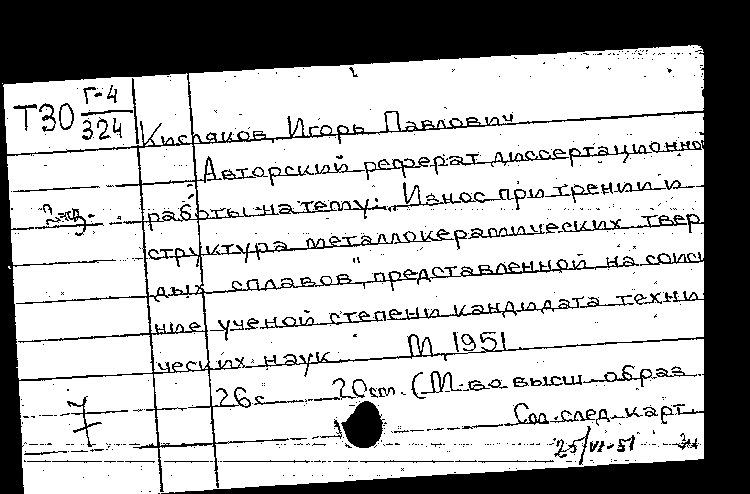 Т30 Г-4
324
Кисляков, Игорь Павлович
Авторский реферат диссертационной
2 экз. работы на тему: „Износ при трении и
структура металлокерамических твер
дых сплавов", представленной на соис
ние ученой степени кандидата техни
ческих наук. М, 1951.
26с 20см. (М-во высш. образ
См. след. карт.
25/VI-51